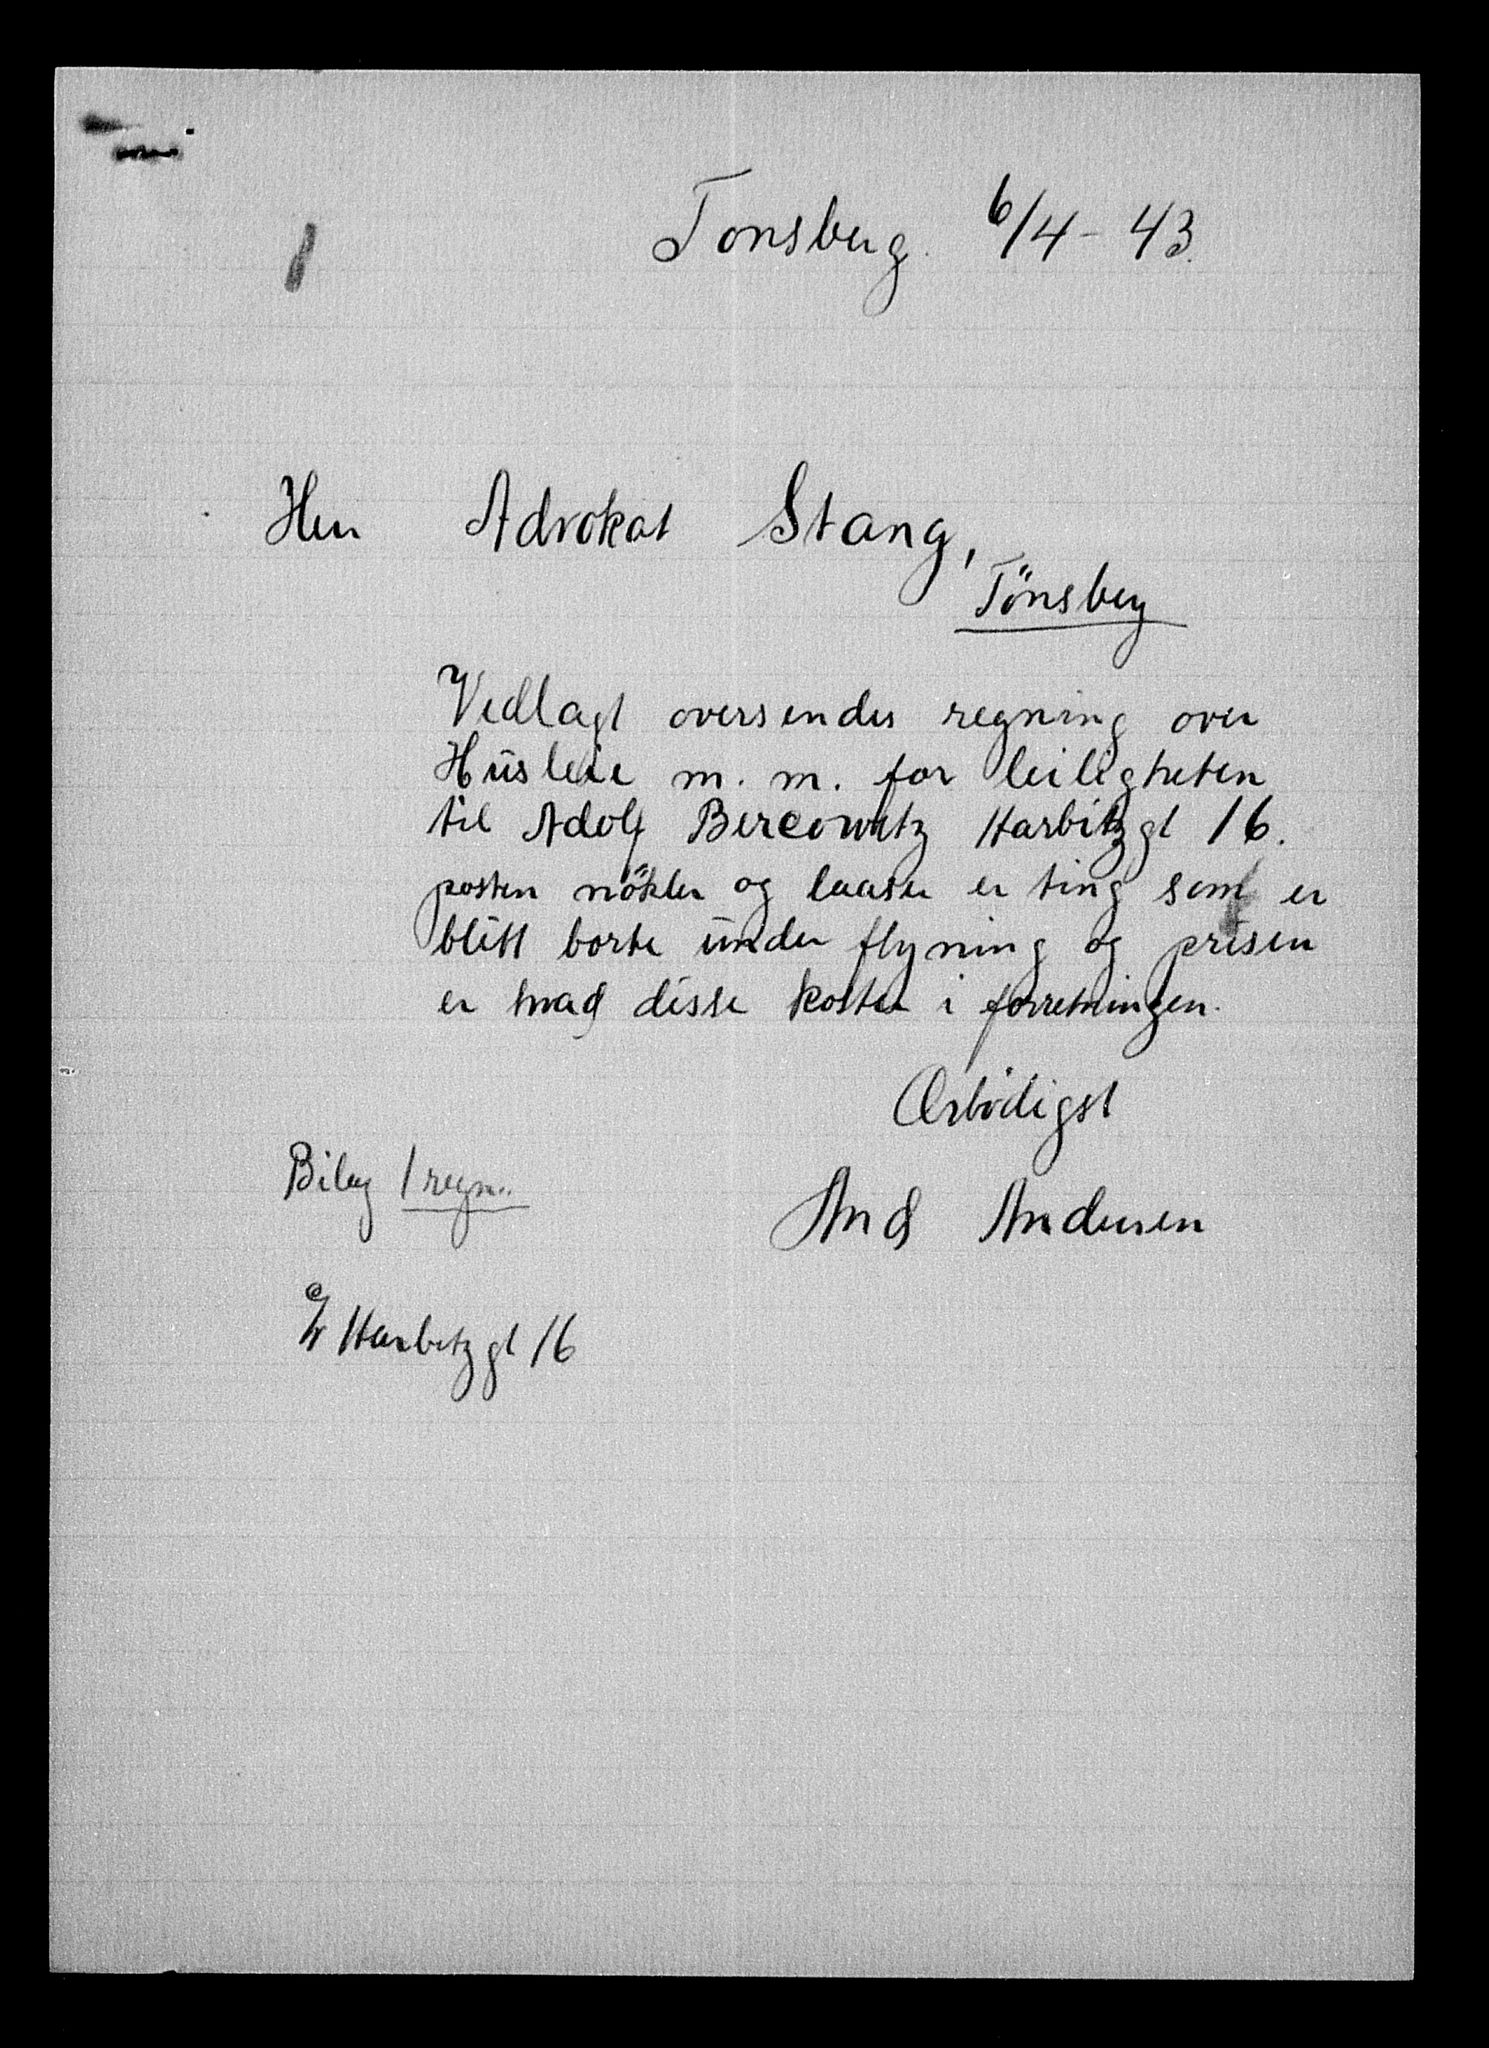 Tonsberg. 6/4 - 43.
Herr Advokat Stang,
Tönsberg
Vedlagt oversendes regning over
Husleie m. m. for leiligheten
til Adolf Bercowitz Harbitzgt 16.
posten nökler og laaser er ting som er
blitt borte under flyning og prisen
er hvad disse koster i forretningen.
Ærbödigst
And Andersen
Bilag 1 regn.
Harbitzgt 16